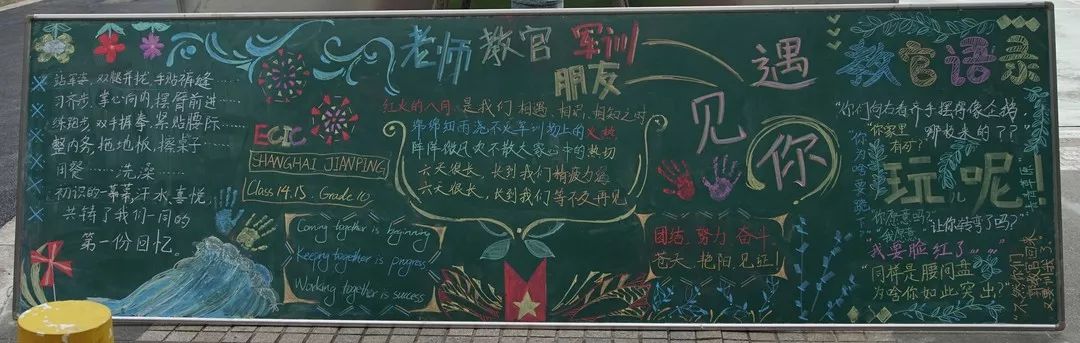 站军姿，双腿并拢，手贴裤缝……
习齐步，掌心向内，摆臂前进……
练跑步，双手握拳，紧贴腰际……
整内务，拖地板，擦桌子……
用餐……洗澡……
初识的一幕幕，汗水，喜悦，
共铸了我们一同的
第一份回忆。
ECIC
SHANGHAI JIANPING
Class 14.15. Grade 10
老师 教官 军训
朋友
红火的八月，是我们相遇、相识、相知之时
绵绵细雨浇不灭军训场上的火热
阵阵微风吹不散大家心中的热切
六天很长，长到我们精疲力尽
六天很长，长到我们等不及再见
Coming together is beginning
Keeping together is progress
Working together is success
遇
见
你
团结，努力，奋斗，
苍天，艳阳，见证！
教官语录
"你们向右看齐手摆得像企鹅，
哪校来的??"
"你家里
有矿?"
玩儿呢!
"你愿意吗?"
"我愿意"
"让你转弯了吗?"
我要脸红了……"
"同样是腰间盘，
为啥你如此突出?"